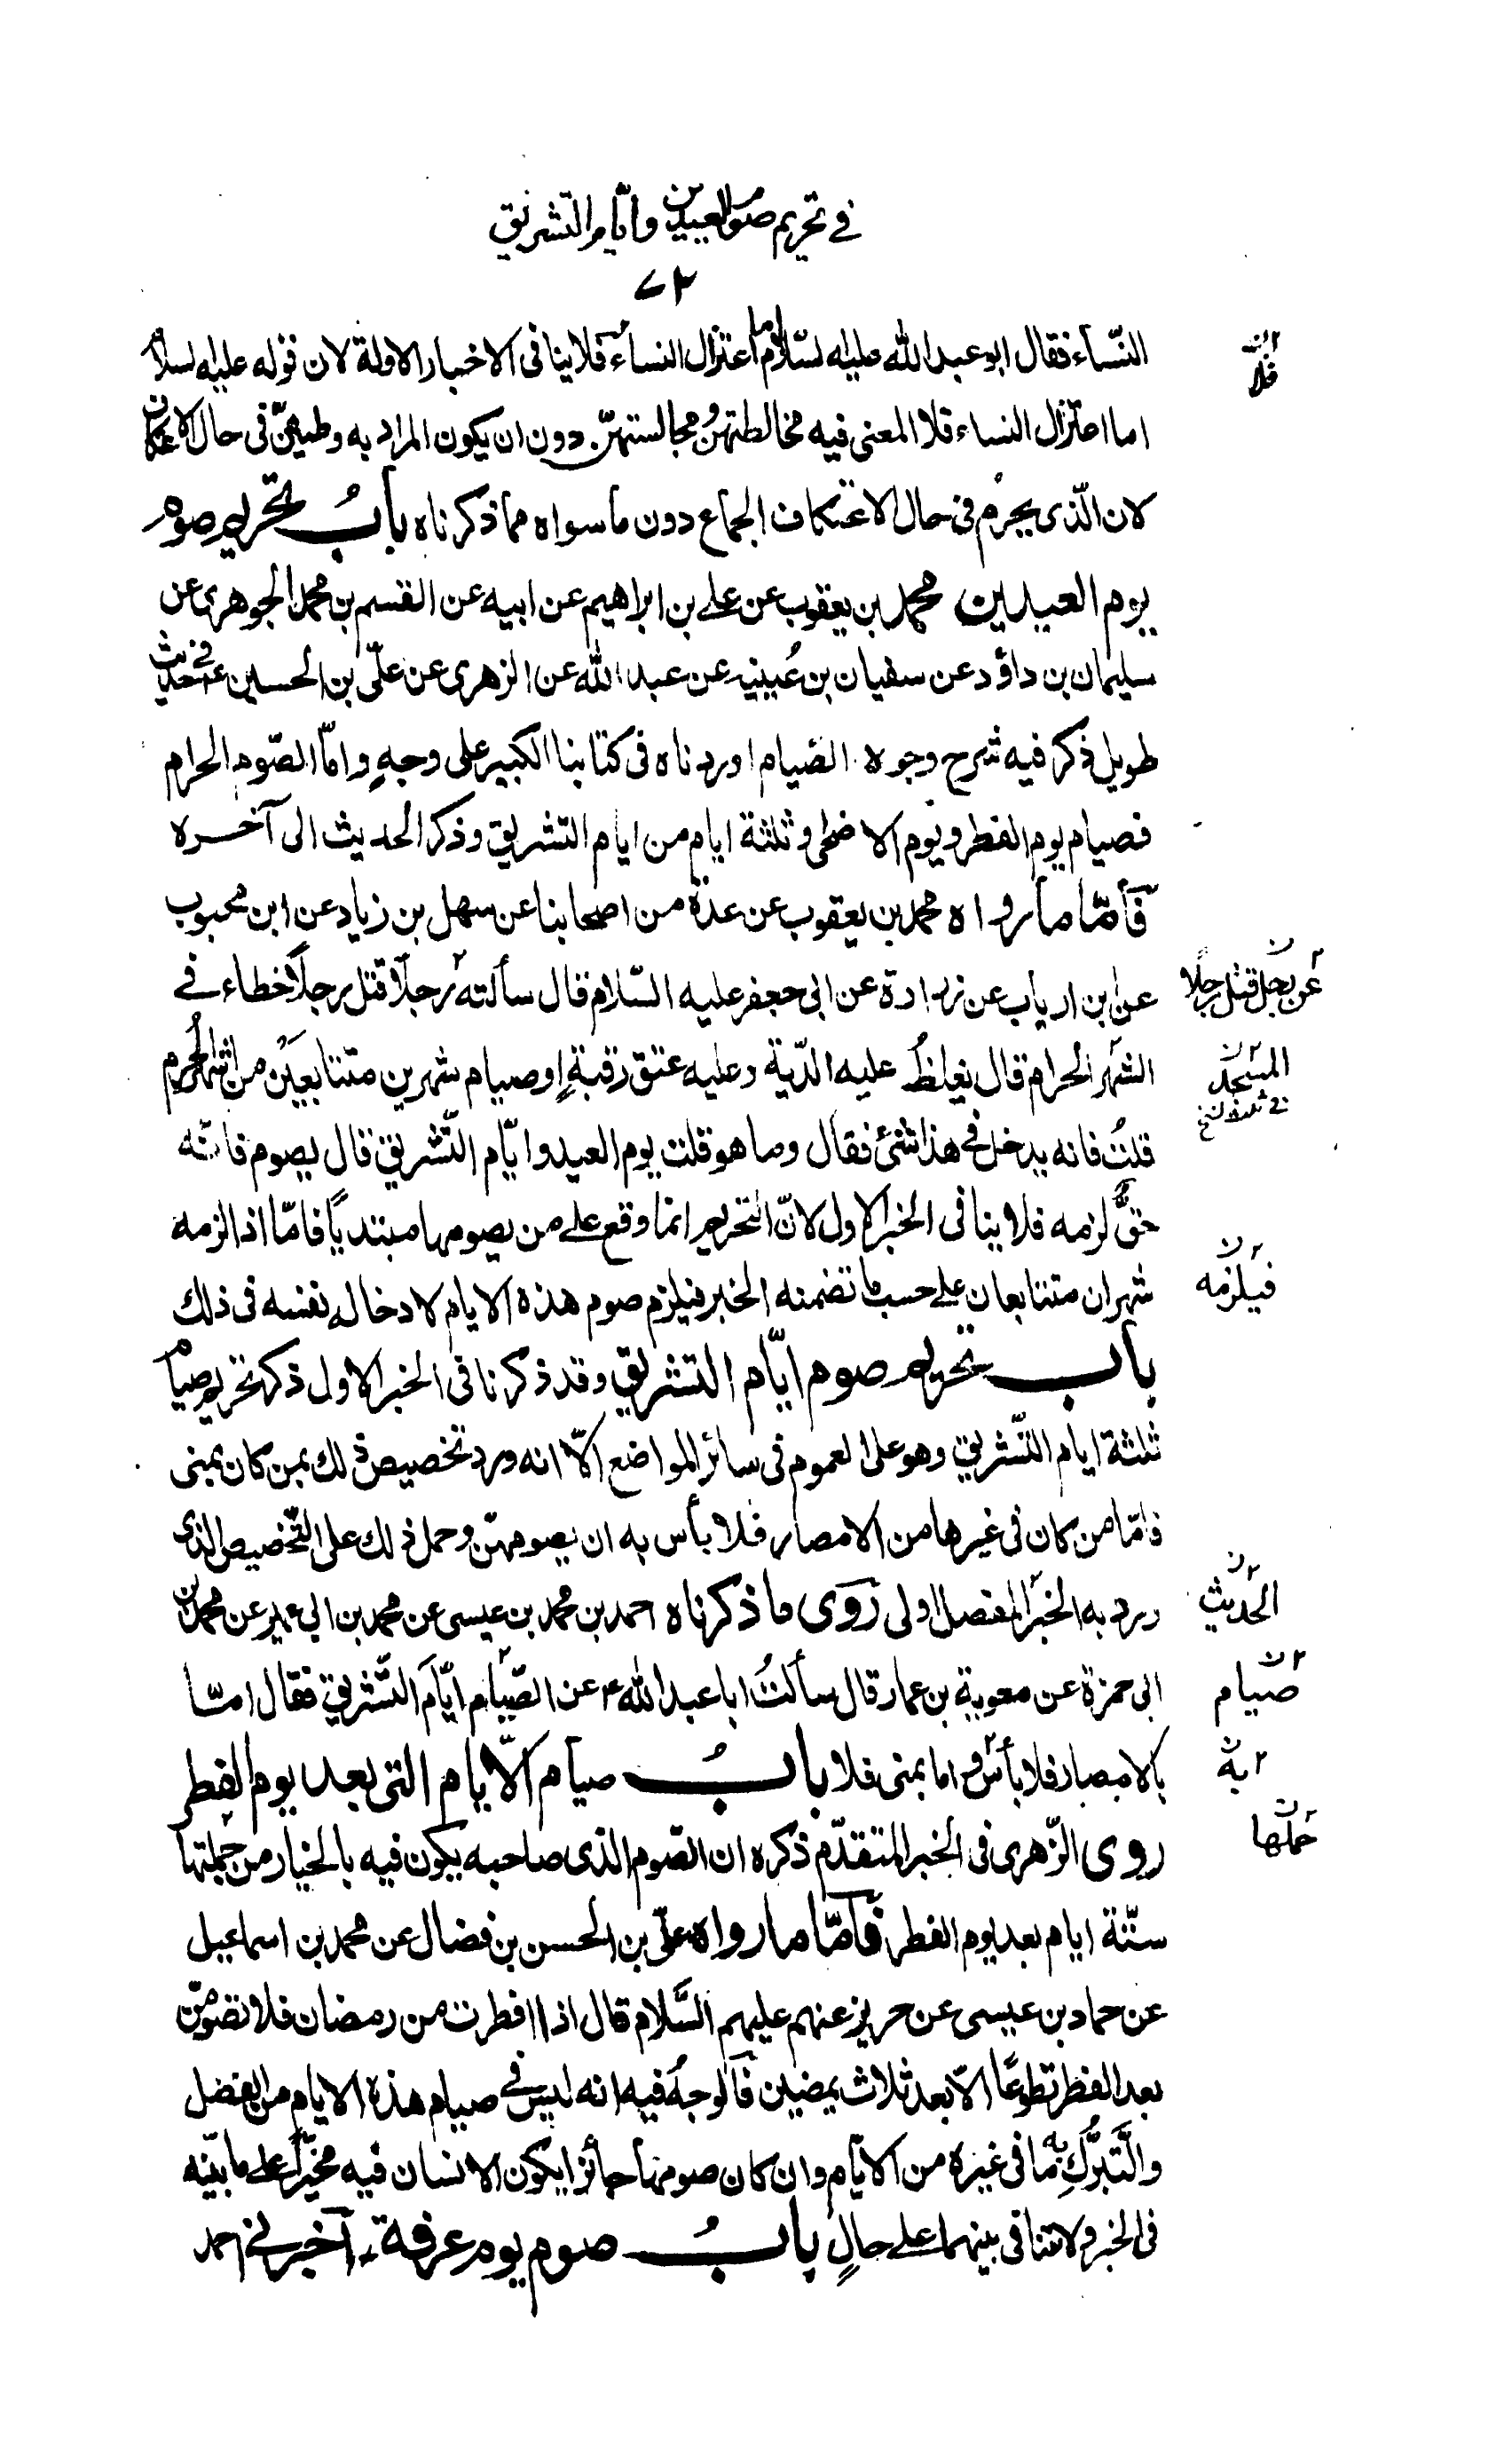 في تحريم صوم العيدين وايام التشريق
٧٢
النّساء فقال ابو عبد الله عليه السّلام اما اعتزال النساء فلا ينافى الاخبار الاولة لان قوله عليه السلام
اما اعتزال النساء فلا المعنى فيه مخالطتهن ومجالستهنّ دون ان يكون المراد به وطيهنّ فى حال الاعتكاف
لان الّذى يحرم فى حال الاعتكاف الجماع دون ما سواه مما ذكرناه بابُ تحريم صوم
يوم العيدين محمد بن يعقوب عن على بن ابراهيم عن ابيه عن القسم بن محمد الجوهرى عن
سليمان بن داؤد عن سفيان بن عُيينه عن عبد الله عن الزهرى عن علىّ بن الحسين ع فى حديث
طويل ذكر فيه شرح وجوه الصّيام اوردناه فى كتابنا الكبير على وجهٍ وامّا الصّوم الحرام
فصيام يوم الفطر ويوم الاضحى وثلثة ايام من ايام التشريق وذكر الحديث الى آخره
فأمّا ما رواه محمد بن يعقوب عن عدّة من اصحابنا عن سهل بن زياد عن ابن محبوب
عن ابن ارياب عن زرارة عن ابى جعفر عليه السّلام قال سألته رجلًا قتل رجلًا خطاء فے
عن رجل قتل رجلًا
الشّهر الحرام قال يغلظُ عليه الدّية وعليه عتق رقبةٍ او صيام شهرين متتابعين من اشهر الحُرم
قلتُ فانه يدخل فى هذا شئ فقال وما هو قلت يوم العيد وايّام التّشريق قال يصوم فانّه
حقٌّ لزمه فلا ينافى الخبر الاول لانّ التحريم انما وقع على من يصومها مبتديًا فامّا اذا لزمه
شهران متتابعان على حسب ما تضمنه الخبر فيلزم صوم هذه الايام لادخاله نفسه فى ذلك
فيلزمه
باب تحريم صوم ايّام التشريق وقد ذكرنا فى الخبر الاول ذكر تحريم صيام
ثلثة ايام التّشريق وهو على العموم فى سائر المواضع الّا انه ورد تخصيص ذلك بمن كان بمنى
فامّا من كان فى غيرها من الامصار فلا بأس به ان يصومهنّ وحمل ذلك على التّخصيص الذى
ورد به الخبر المفصل اولى رَوى ما ذكرناه احمد بن محمد بن عيسى عن محمد بن ابى عمير عن محمد بن
الحديث
ابى حمزة عن معوية بن عمار قال سألتُ ابا عبد الله ع عن الصّيام ايّامَ التّشريق فقال امّا
صيام
بالامصار فلا بأس واما بمنى فلا بابُ صيام الّايام التى بعد يوم الفطر
به
روى الزّهرى فى الخبر المتقدّم ذكره ان الصّوم الذى صاحبه يكون فيه بالخيار من جملتها
جملتها
ستّة ايام بعد يوم الفطر فأمّا ما رواه علىّ بن الحسن بن فضال عن محمد بن اسماعيل
عن حماد بن عيسى عن حريز عنهم عليهم السَّلام قال اذا افطرت من رمضان فلا تصومنّ
بعد الفطر تطوعًا الّا بعد ثلاث يمضين فالوجهُ فيه انه ليس فے صيام هذه الايام من الفضل
والتّبرُّكِ به ما فى غيره من الايّام وان كان صومها جائزا يكون الانسان فيه مخيّرًا على ما بيّنه
فى الخبر ولا تنافى بينهما على حالٍ بابُ صوم يوم عرفة اخبرنى احمد